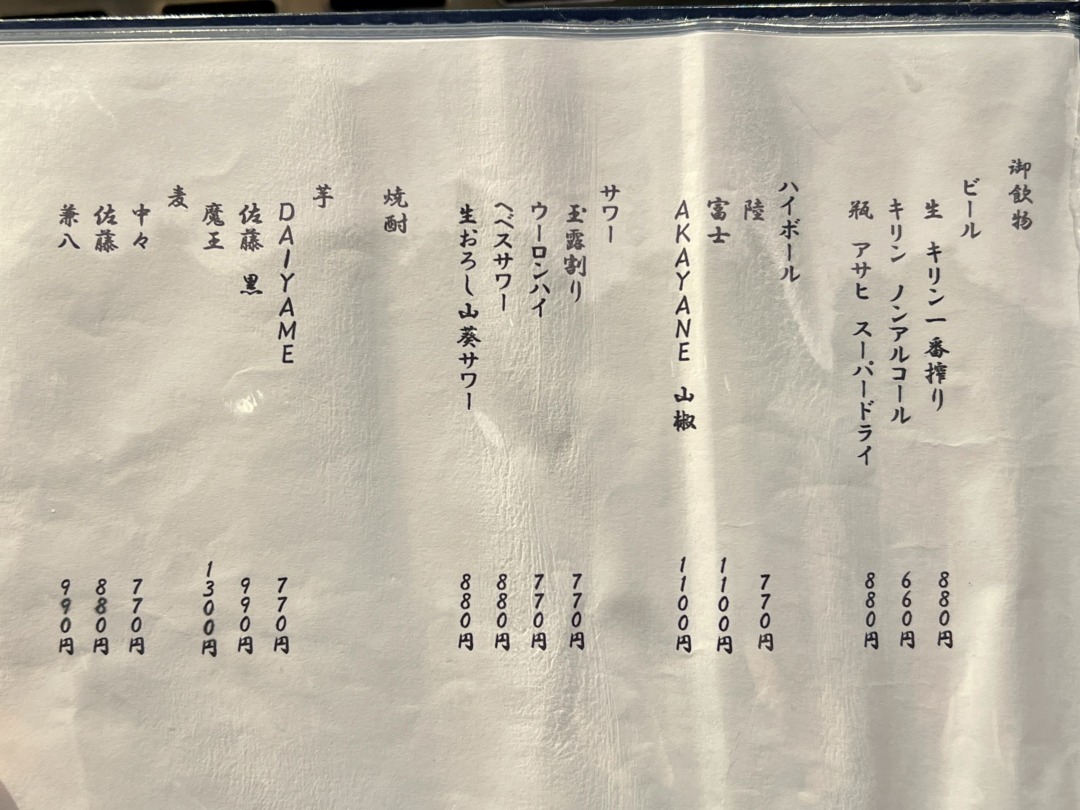 御飲物
ビール
生 キリン一番搾り 880円
キリン ノンアルコール 660円
瓶 アサヒ スーパードライ 880円
ハイボール
陸 770円
富士 1100円
AKAYANE 山椒 1100円
サワー
玉露割り 770円
ウーロンハイ 770円
へベスサワー 880円
生おろし山葵サワー 880円
焼酎
芋
DAIYAME 770円
佐藤 黒 990円
魔王 1300円
麦
中々 770円
佐藤 880円
兼八 990円